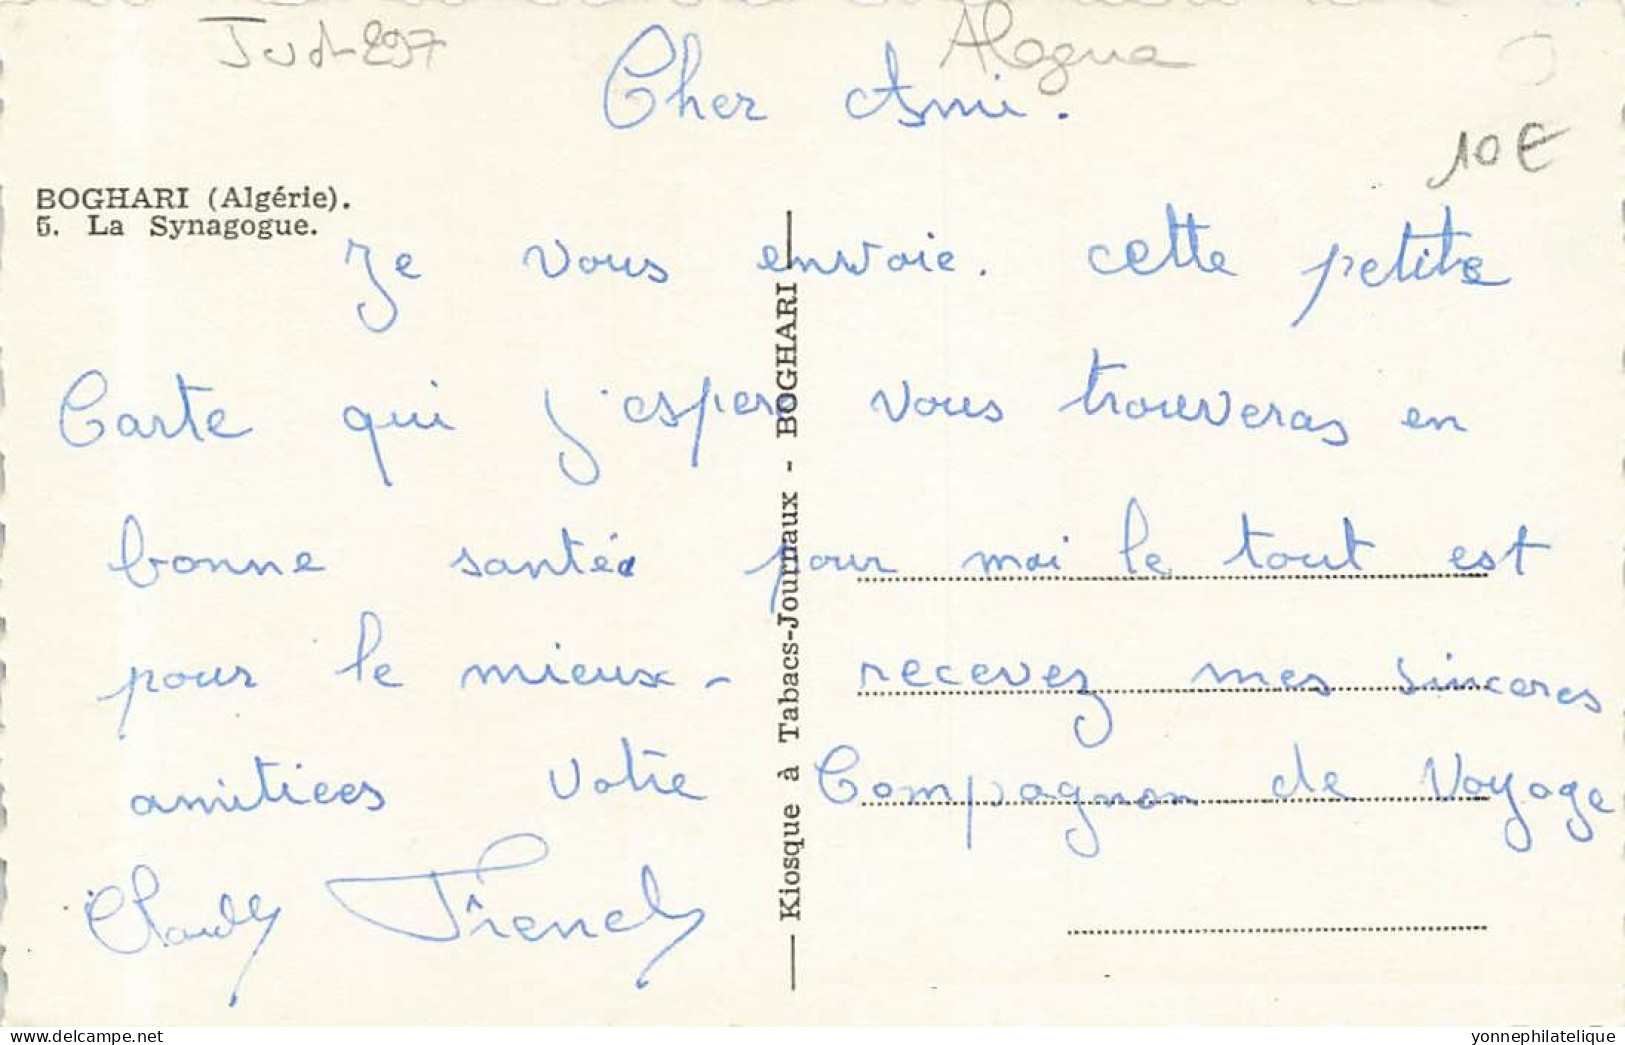 Jud-297
Cher Ami.
10 €
BOGHARI (Algérie).
5. La Synagogue.
Je vous envoie. cette petite
Carte qui j'espere vous trouveras en
bonne santée pour moi le tout est
pour le mieux - recevez mes sinceres
amitiees votre Compagnon de Voyage
Kiosque à Tabacs-Journaux - BOGHARI
www.delcampe.net
yonnephilatelique